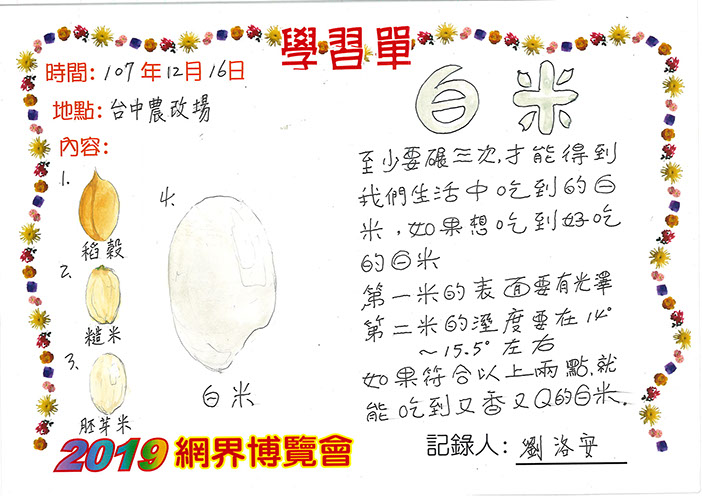 學習單
時間：107年12月16日
地點：台中農改場
內容：
1.
稻穀
2.
糙米
3.
胚芽米
4.
白米
白米
至少要碾三次,才能得到
我們生活中吃到的白
米,如果想吃到好吃
的白米
第一米的表面要有光澤
第二米的溼度要在14°
~15.5°左右
如果符合以上兩點,就
能吃到又香又Q的白米.
2019網界博覽會
記錄人：劉洛安